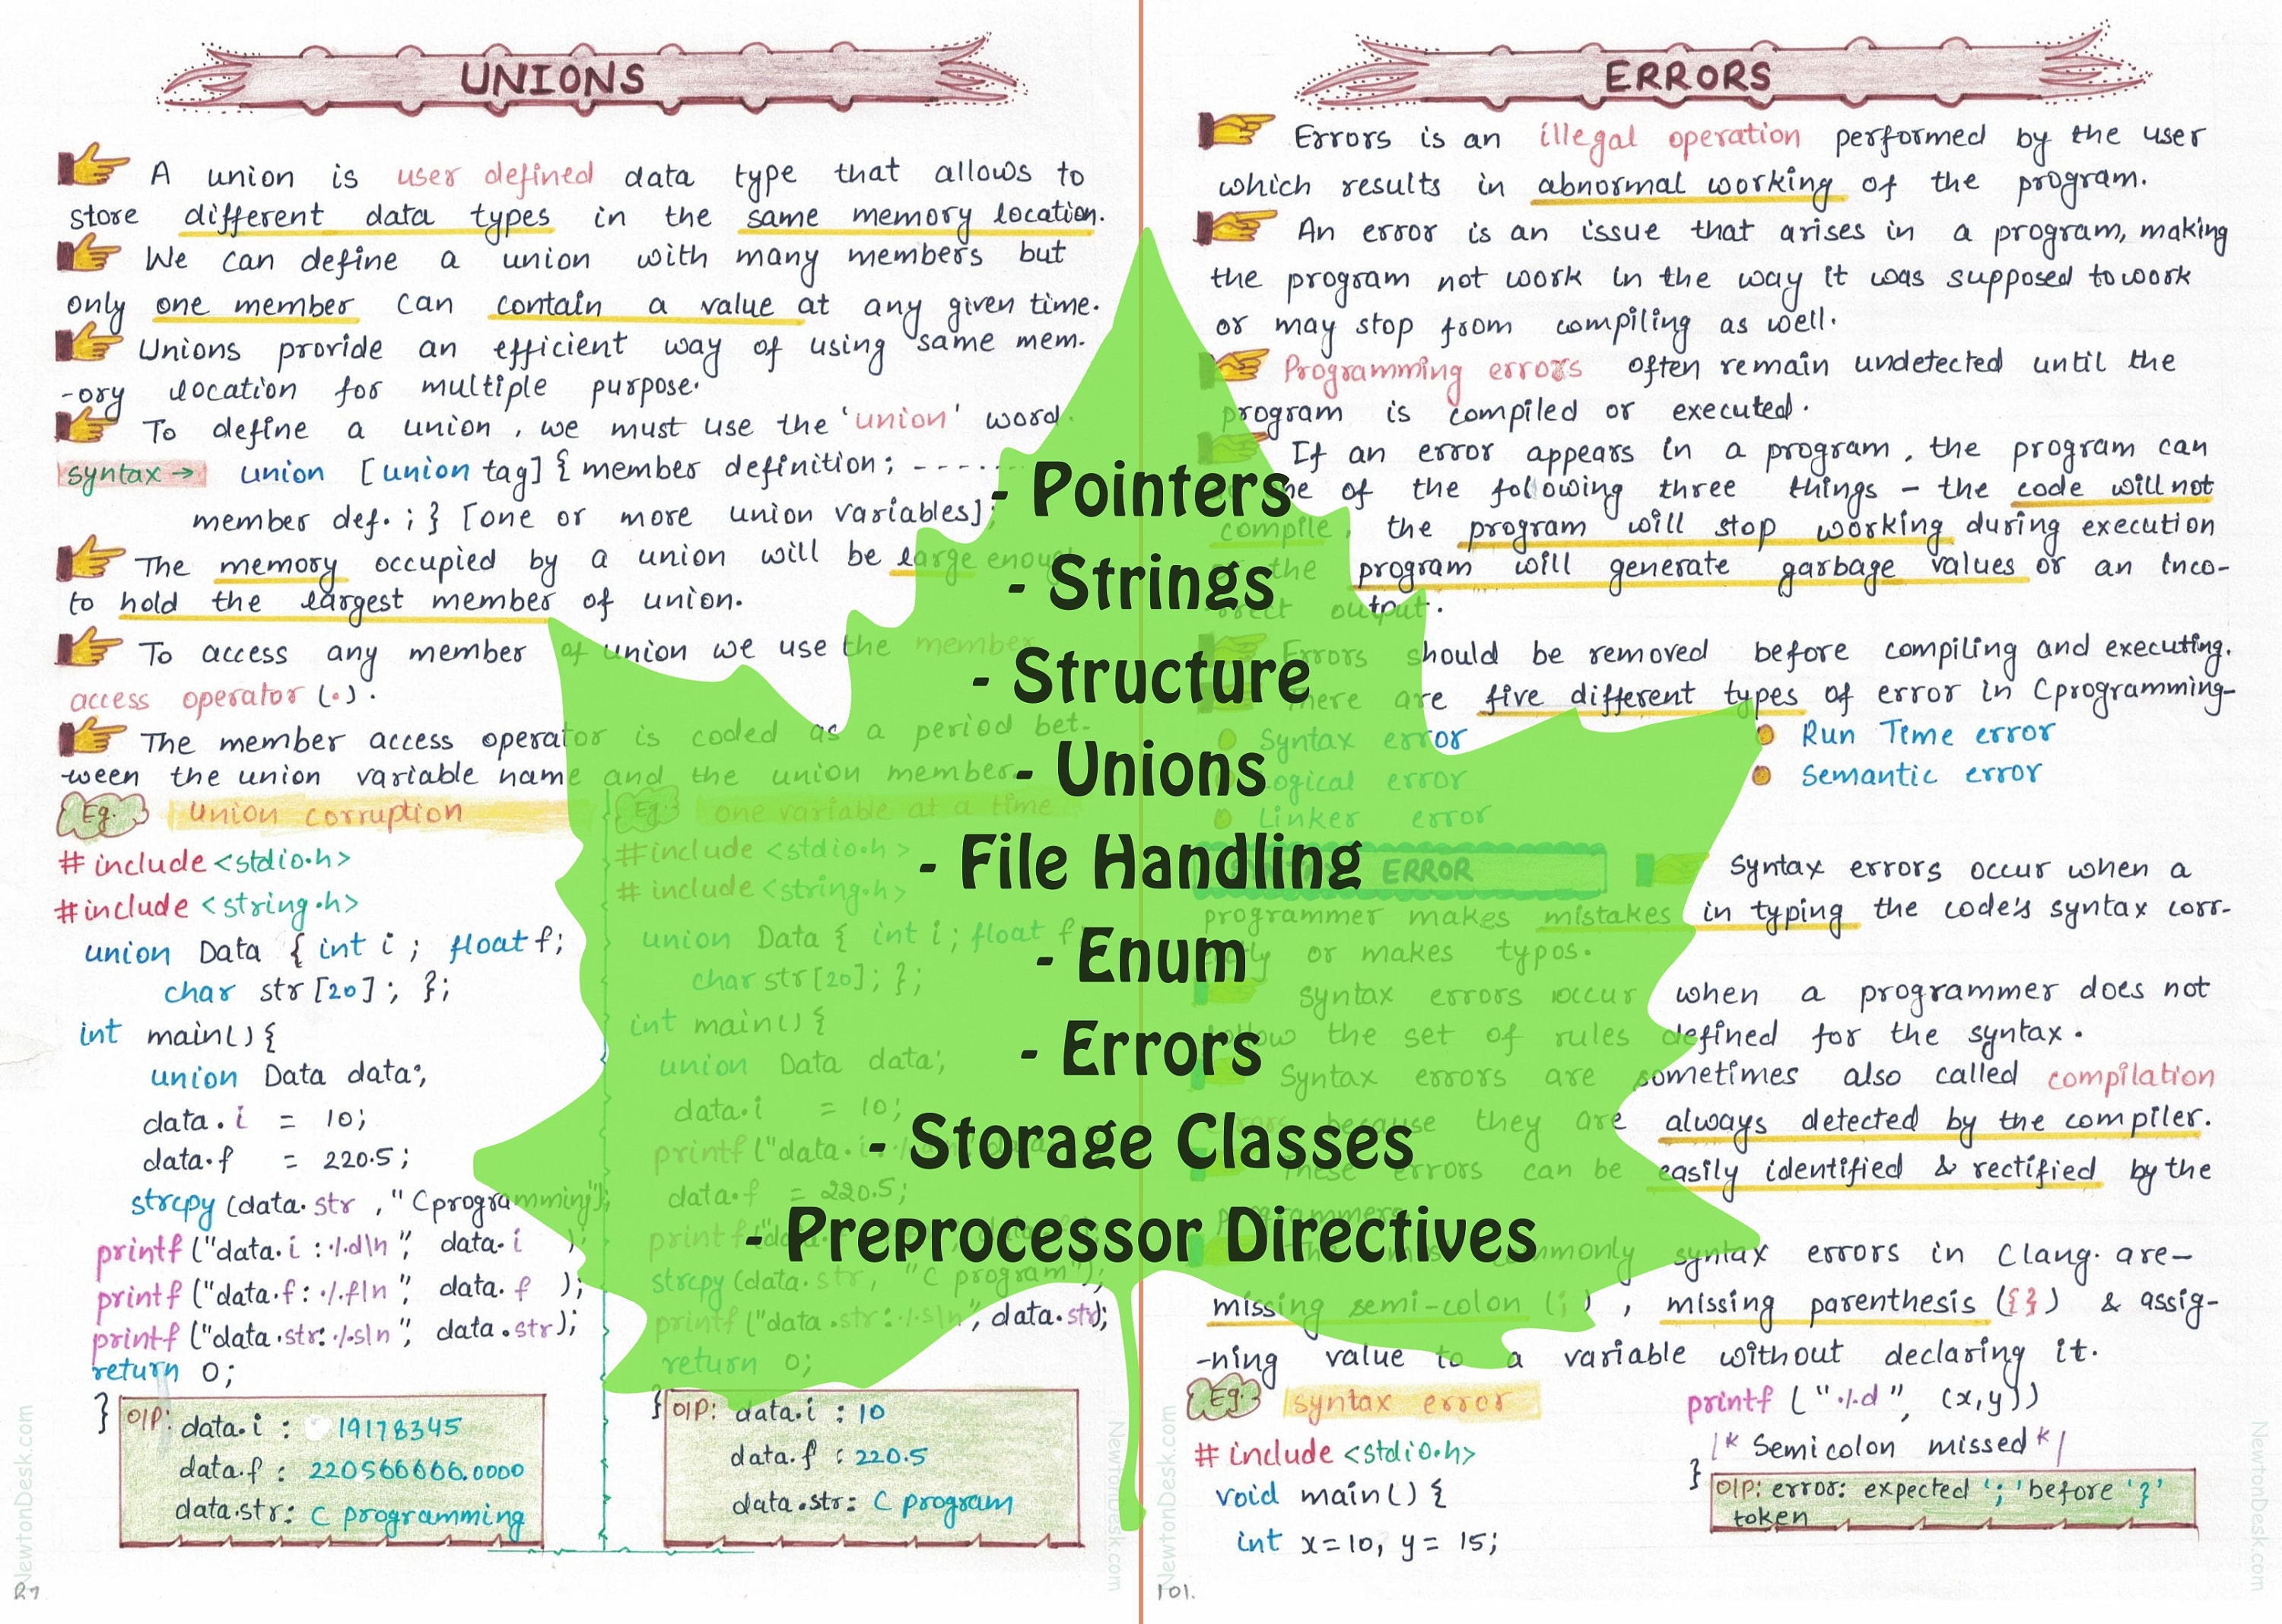 UNIONS
A union is user defined data type that allows to
store different data types in the same memory location.
We can define a union with many members but
only one member can contain a value at any given time.
Unions provide an efficient way of using same mem-
-ory location for multiple purpose.
To define a union, we must use the 'union' word.
syntax → union [union tag] { member definition; ------
member def. ; } [one or more union variables];
The memory occupied by a union will be large enough
to hold the largest member of union.
To access any member of union we use the member
access operator (.).
The member access operator is coded as a period bet-
-ween the union variable name and the union member.
Eg. Union corruption
#include <stdio.h>
#include <string.h>
union Data { int i ; float f;
char str [20] ; };
int main() {
union Data data;
data.i = 10;
data.f = 220.5;
strcpy (data.str , "C programming");
printf ("data.i : %d\n", data.i );
printf ("data.f : %f\n", data.f );
printf ("data.str: %s\n", data.str);
return 0;
}
O/P: data.i : 19178345
data.f : 220566666.0000
data.str: C programming
Eg. one variable at a time
#include <stdio.h>
#include <string.h>
union Data { int i ; float f;
char str [20] ; };
int main() {
union Data data;
data.i = 10;
printf ("data.i
data.f = 220.5;
printf (
strcpy (data.str, "C program");
printf ("data.str: %s\n", data.str);
return 0;
}
O/P: data.i : 10
data.f : 220.5
data.str: C program
- Pointers
- Strings
- Structure
- Unions
- File Handling
- Enum
- Errors
- Storage Classes
- Preprocessor Directives
ERRORS
Errors is an illegal operation performed by the user
which results in abnormal working of the program.
An error is an issue that arises in a program, making
the program not work in the way it was supposed to work
or may stop from compiling as well.
Programming errors often remain undetected until the
program is compiled or executed.
If an error appears in a program, the program can
of the following three things - the code will not
compile, the program will stop working during execution
the program will generate garbage values or an inco-
rrect output.
Errors should be removed before compiling and executing.
There are five different types of error in C programming-
Syntax error
Run Time error
Logical error
Semantic error
Linker error
ERROR
Syntax errors occur when a
programmer makes mistakes in typing the code's syntax corr-
or makes typos.
Syntax errors occur when a programmer does not
follow the set of rules defined for the syntax.
Syntax errors are sometimes also called compilation
because they are always detected by the compiler.
These errors can be easily identified & rectified by the
programmers.
commonly syntax errors in C lang. are-
missing semi-colon (;) , missing parenthesis ({}) & assig-
-ning value to a variable without declaring it.
Eg. syntax error
#include <stdio.h>
void main() {
int x=10, y= 15;
printf ("%d", (x,y))
/* Semicolon missed */
}
O/P: error: expected ';' before '}'
token
101.
NewtonDesk.com
NewtonDesk.com
NewtonDesk.com
NewtonDesk.com